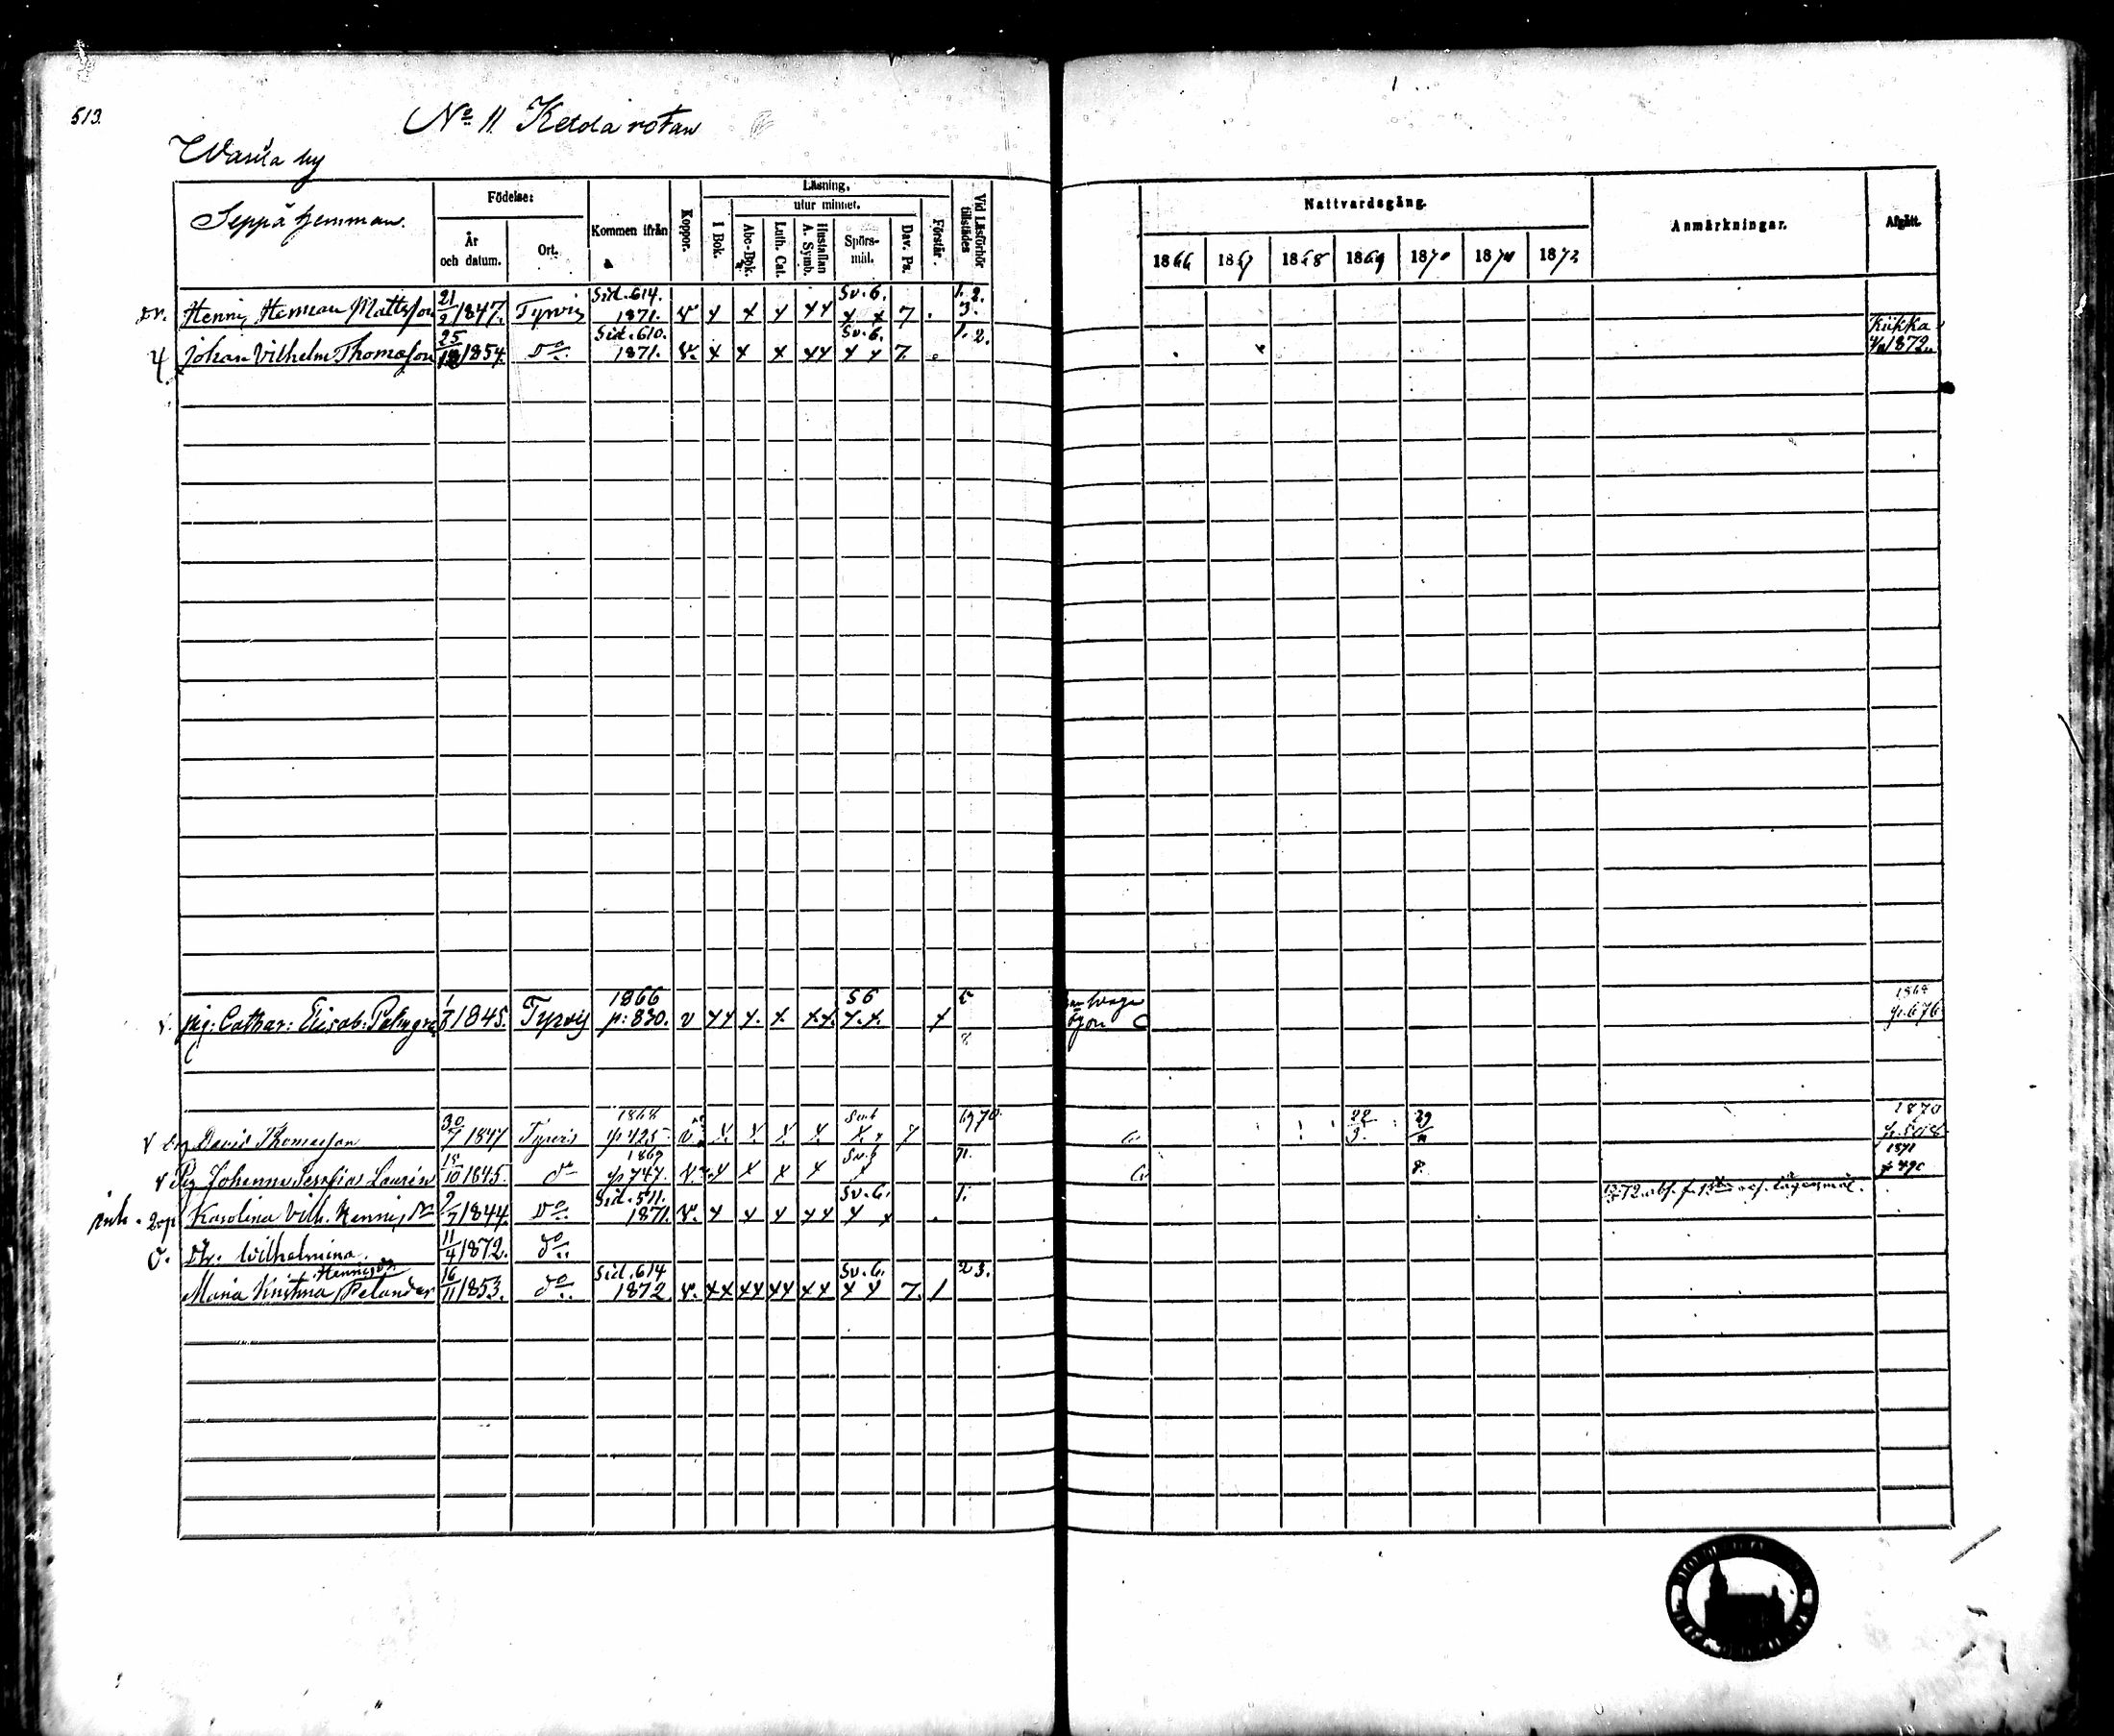 513.
No 11. Ketola rotan
Warila by
Seppä hemman.
Födelse:
År och datum.
Ort.
Kommen ifrån
Koppor.
Läsning.
utur minnet.
1 Bok.
Abc-Bok.
Luth. Cat.
Hustaflan A. Symb.
Spörs-mål.
Dav. Ps.
Förstår.
Vid Läsförhör tillstädes
Nattvardsgång.
1866 1867 1868 1869 1870 1871 1872
Anmärkningar.
Afgått.
Dr. Henric Herman Mattsson 21/2 1847. Tyrvis Sid. 614. 1871. v x x x xx Sv. 6. x x 7 . 1. 2. 3.
Johan Vilhelm Thomasson 25/12 1854. Do Sid. 610. 1871. v. x x x xx Sv. 6. x x 7 . 1. 2. Kiikka 1872
v. pig. Cathar: Elisab: Palmgren 1845. Tyrvis 1866 p: 830. v xx x. x. xx. S 6 x.x. x 1868 p. 676
v dr David Thomasson 30/7 1847 Tyrvis 1868 p 425 v. x x x x x x 7 69 70. 22/3 29 1870
v Pig Johanna Serafia Laurén 18/10 1845. do 1869 p 747. v. x x x x Sv. 6 x 71. 8. 1871 p 490
inh. Karolina Vilh. Henricsdr 9/7 1844 Do Sid. 511. 1871. v. x x x xx Sv. 6. x x . 1.
o. Dr. Wilhelmina. 11/4 1872. do
Henricsdr
Maria Kristina Pelander 16/11 1853. do Sid. 614 1872 v. xx xx xx xx Sv. 6. x x 7. 1 2 3.